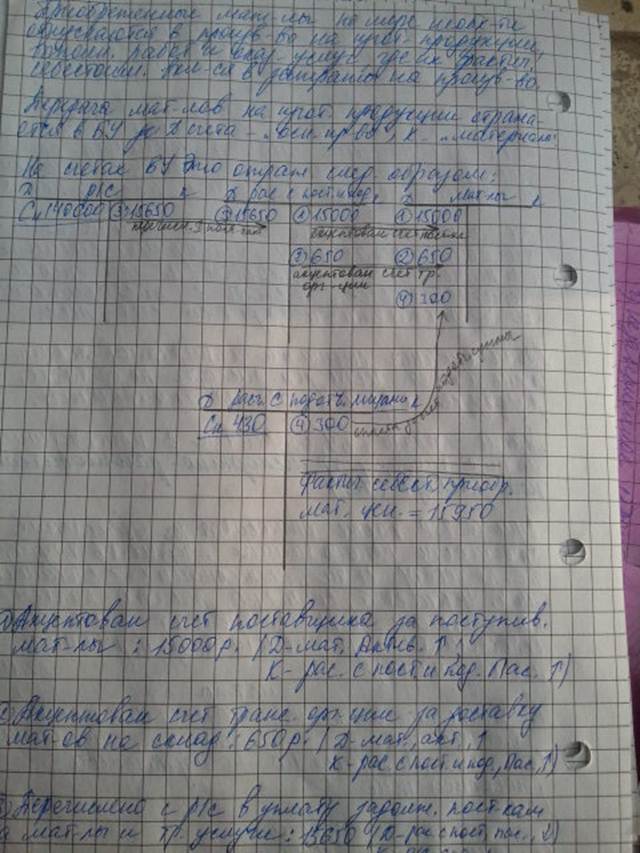 Приобретенные мат-лы по мере необх-ти
отпускаются в произв-во на изгот. продукции,
выполн. работ и оказ. услуг, где их фактич.
себестоим. вкл-ся в затраты на произв-во.
Передача мат-лов на изгот. продукции отража
ется в БУ по Д счета - „осн. пр-во", К - „материалы"
На счетах БУ это отраж. след. образом:
Д Р/С К Д рас. с пост. и под. К Д мат-лы К
Сн 140000 ③ 15650 ③ 15650 ① 15000 ① 15000
акцептован счет пост-ка
② 650 ② 650
акцептован счет тр.
орг-ции
④ 300
Д расч. с подотч. лицами К
Сн 430 ④ 300
Фактич. себест. приобр.
мат. цен. = 15950
Акцептован счет поставщика за поступив.
мат-лы : 15000 р. (Д - мат. Актив. ↑,
К - рас. с пост. и под. Пас. ↑)
Акцептован счет транс. орг-ции за доставку
мат-ов на склад : 650 р. (Д - мат., акт., ↑
К - рас. с пост. и под., Пас, ↑)
Перечислено с р/с в уплату задолж. пост-кам
за мат-лы и тр. услуги : 15650 (Д - рас с пост, пас., ↓)